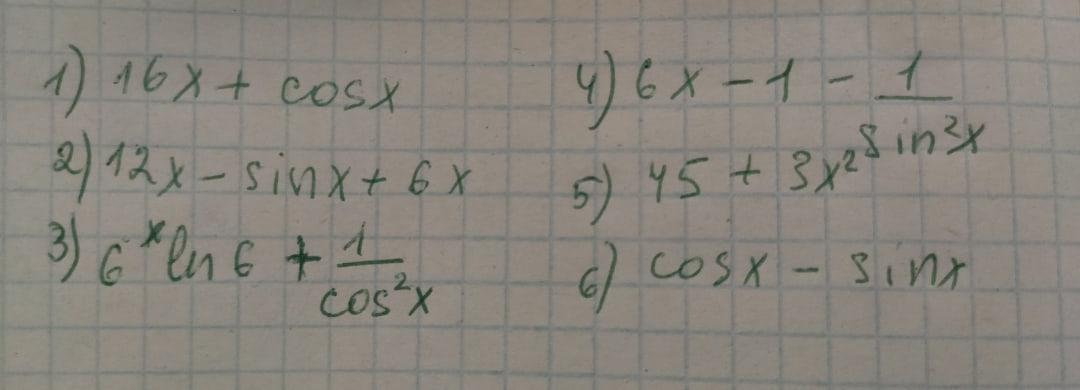 1) 16x + cosx
2) 12x - sinx + 6x
3) 6^x ln 6 + 1/cos²x
4) 6x - 1 - 1/sin²x
5) 45 + 3x²
6) cosx - sinx